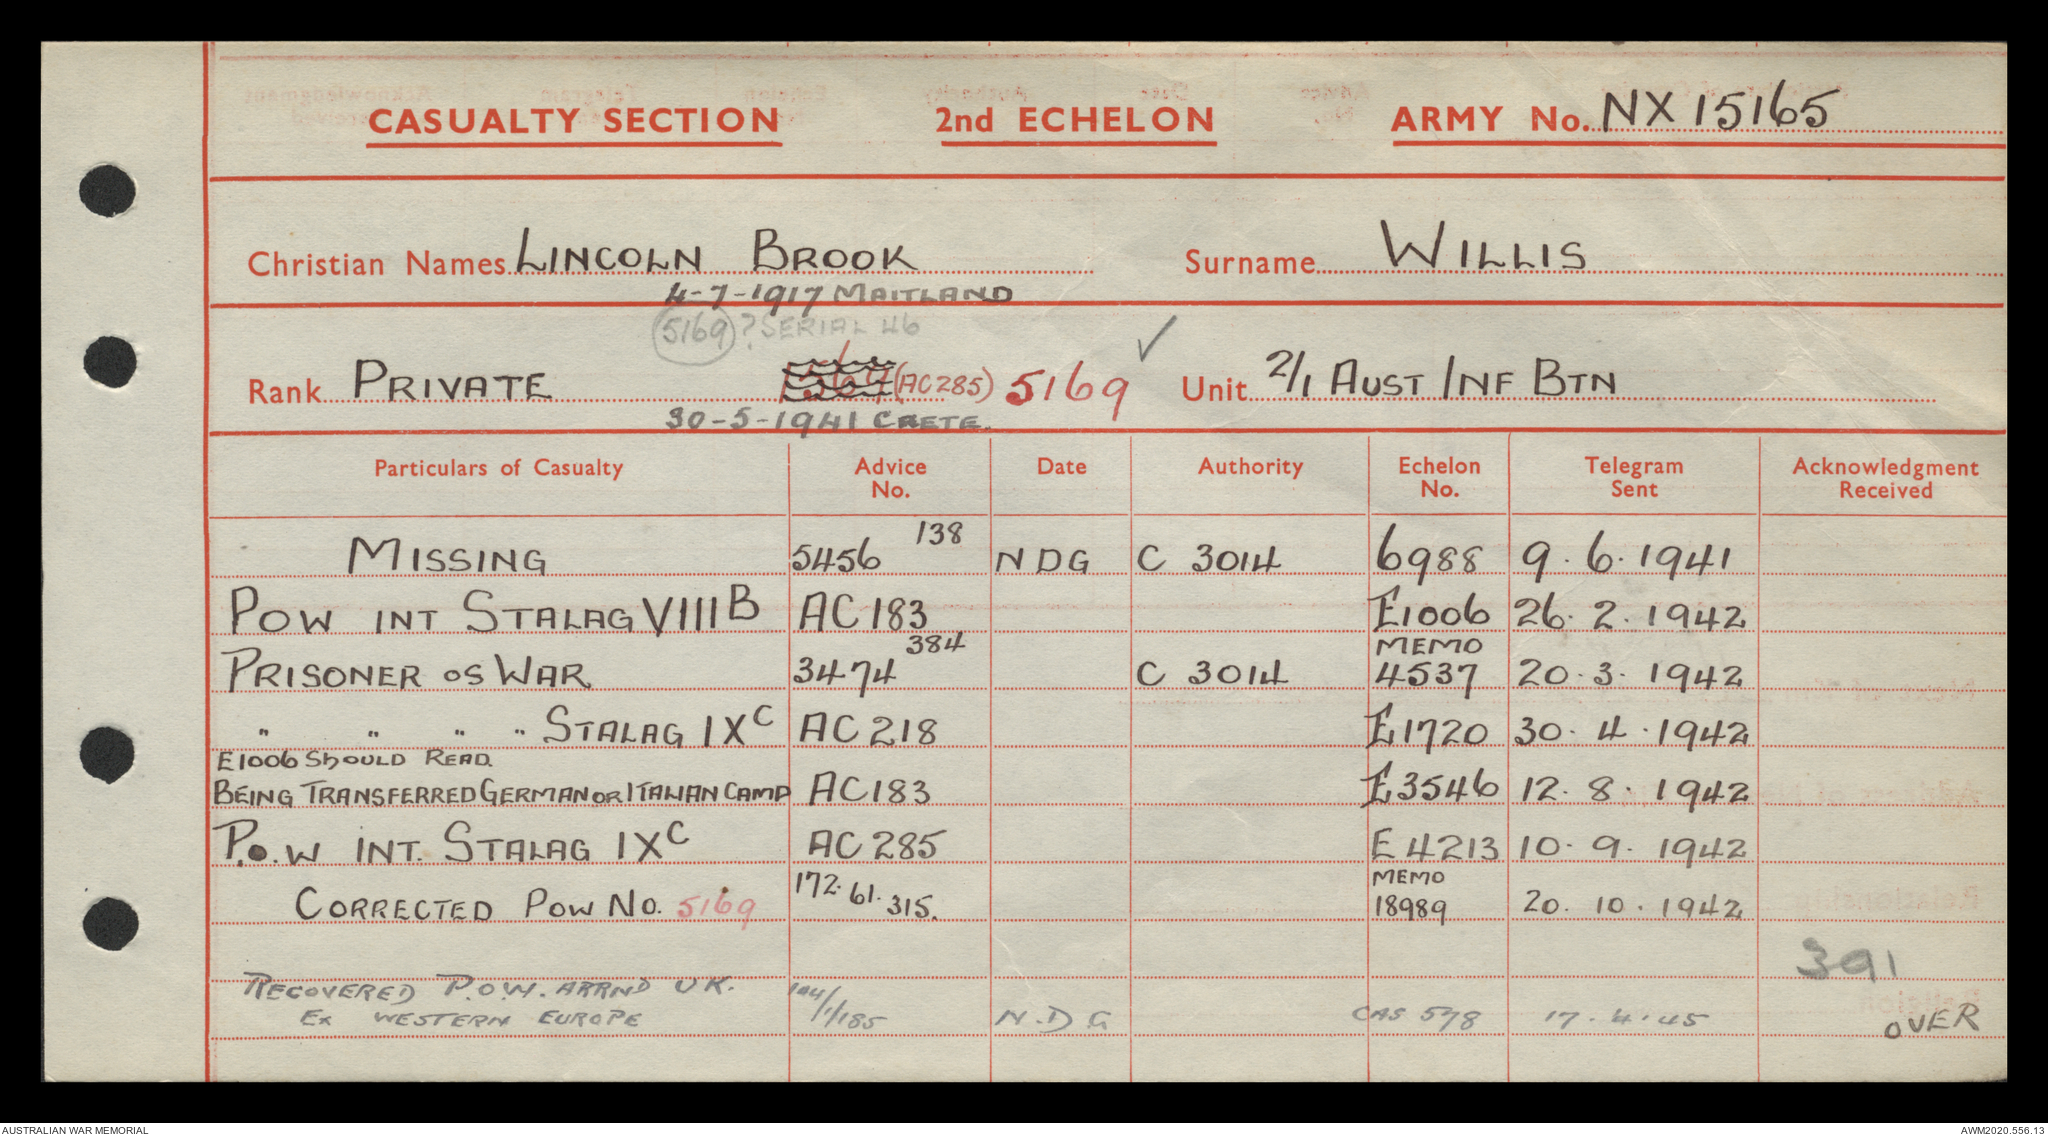 CASUALTY SECTION 2nd ECHELON ARMY No. NX 15165
Christian Names LINCOLN BROOK Surname WILLIS
4-7-1917 MAITLAND
5169 ? SERIAL 46
Rank PRIVATE (AC 285) 5169 ✓ Unit 2/1 AUST INF BTN
30-5-1941 CRETE.
Particulars of Casualty Advice No. Date Authority Echelon No. Telegram Sent Acknowledgment Received
MISSING 5456 138 NDG C 3014 6988 9.6.1941
POW INT STALAG VIIIB AC 183 E1006 26.2.1942
PRISONER OS WAR 3474 384 C 3014 MEMO 4537 20.3.1942
" " " " STALAG IXC AC 218 E1720 30.4.1942
E1006 SHOULD READ.
BEING TRANSFERRED GERMAN OR ITALIAN CAMP AC183 E3546 12.8.1942
P.O.W INT. STALAG IXC AC 285 E 4213 10.9.1942
CORRECTED POW NO. 5169 172.61.315. MEMO 18989 20.10.1942
391
RECOVERED P.O.W. ARRND UK.
EX WESTERN EUROPE 104/1/185 N.D.G CAS 578 17.4.45 OVER
AUSTRALIAN WAR MEMORIAL AWM2020.556.13